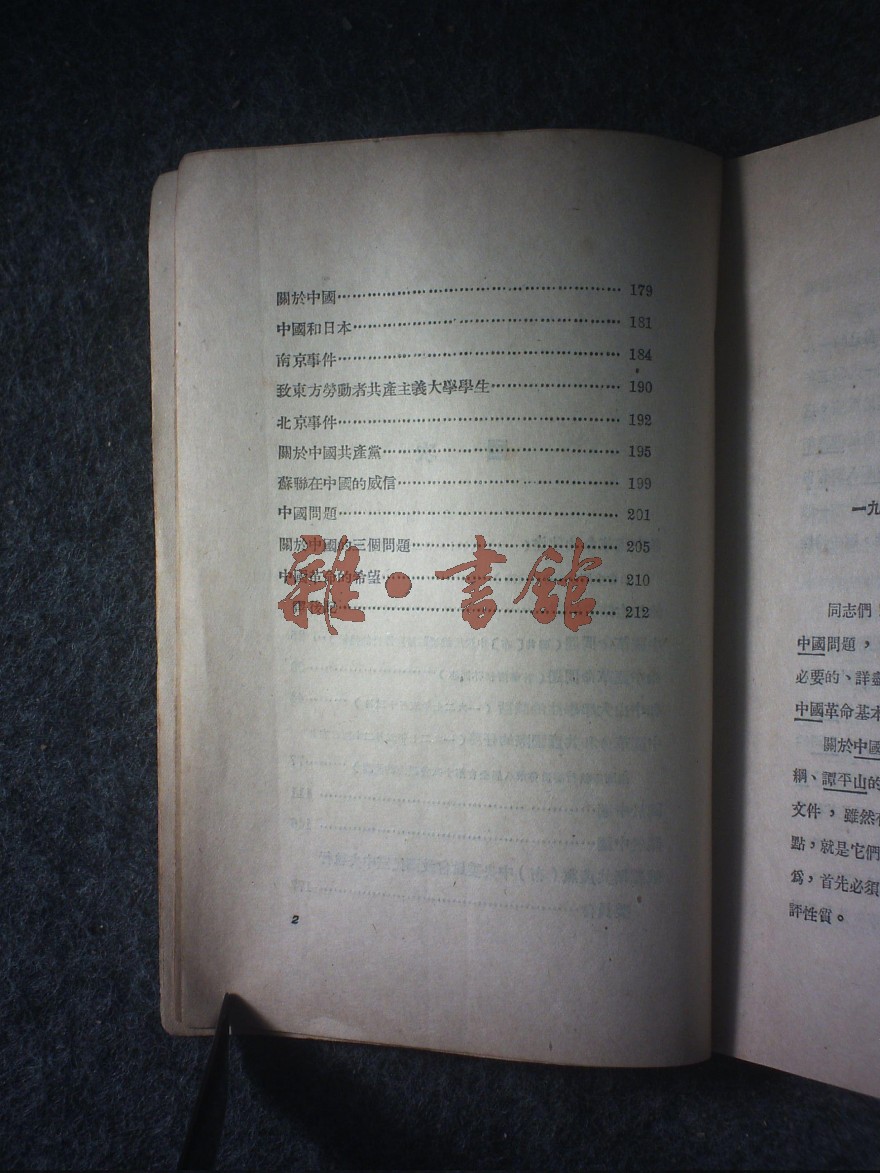 關於中國 179
中國和日本 181
南京事件 184
致東方勞動者共產主義大學學生 190
北京事件 192
關於中國共產黨 195
蘇聯在中國的威信 199
中國問題 201
關於中國的三個問題 205
中國革命的希望 210
後記 212
2
一九
同志們
中國問題，
必要的、詳盡
中國革命基本
關於中國
綱、譚平山的
文件，雖然有
點，就是它們
爲，首先必須
評性質。
雜·書館